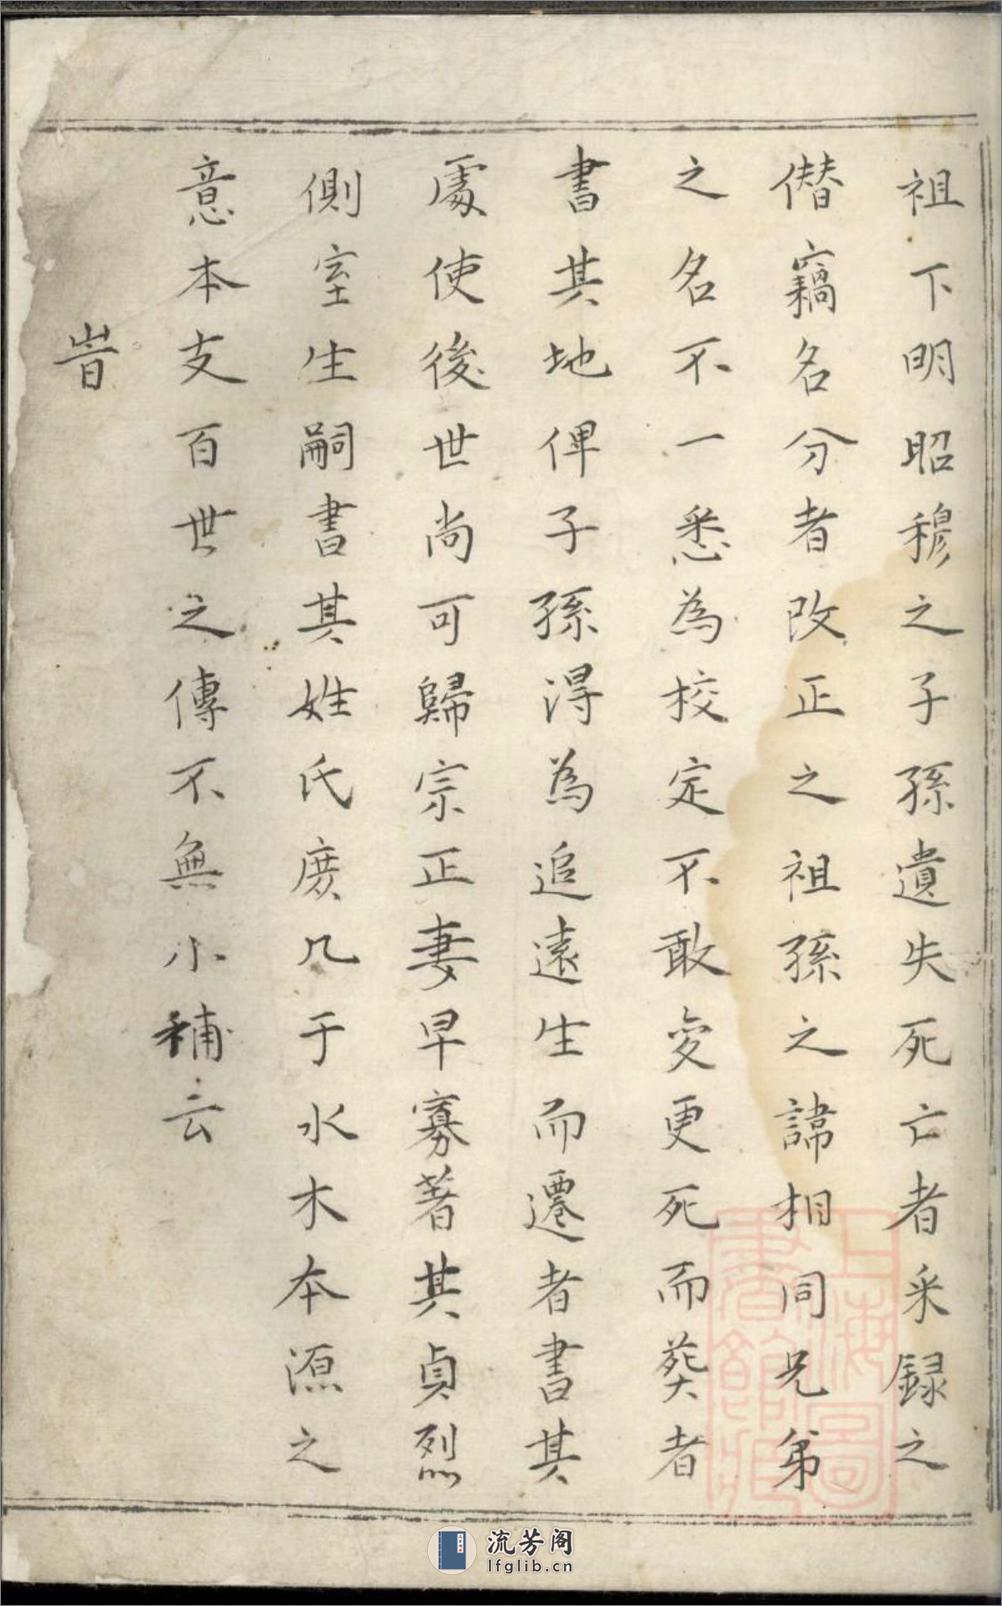 祖下明昭穆之子孫遺失死亡者采録之
僣竊名分者改正之祖孫之諱相同兄弟
之名不一悉為校定不敢变更死而葬者
書其地俾子孫淂為追遠生而遷者書其
處使後世尚可歸宗正妻早寡著其貞烈
側室生嗣書其姓氏庻几于水木本源之
意本支百世之傳不無小補云
旹
上海圖
書館藏
流芳阁
lfglib.cn